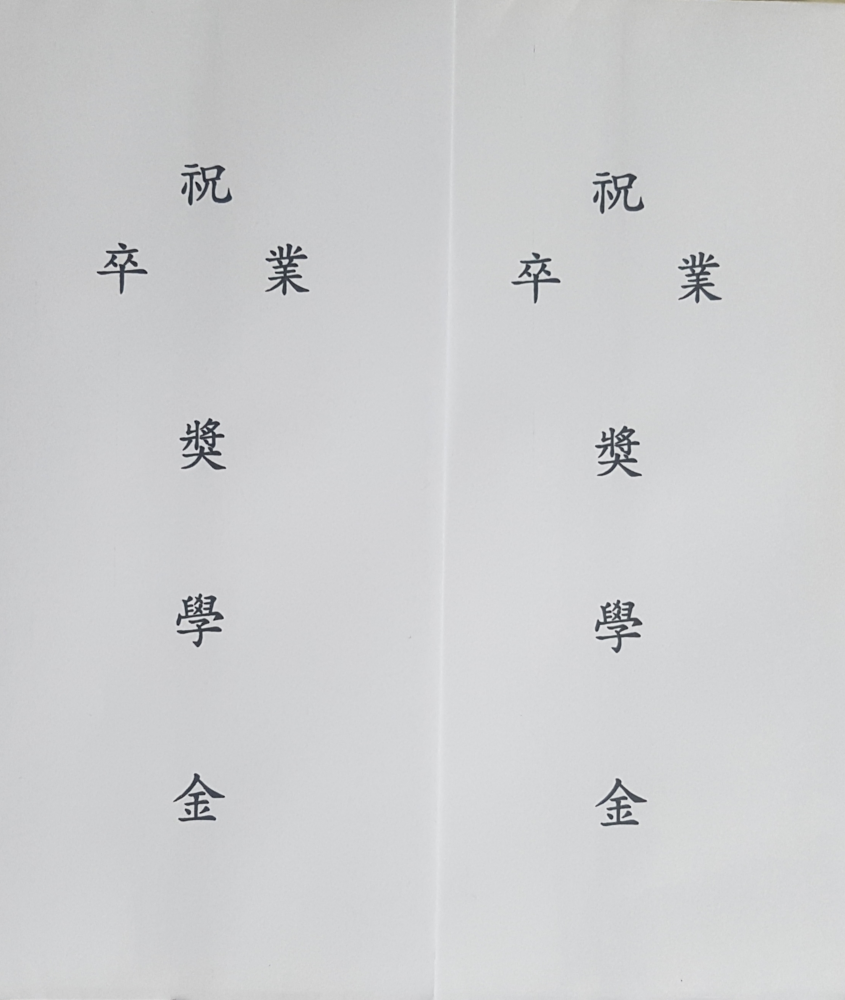 祝
卒 業
獎
學
金
祝
卒 業
獎
學
金